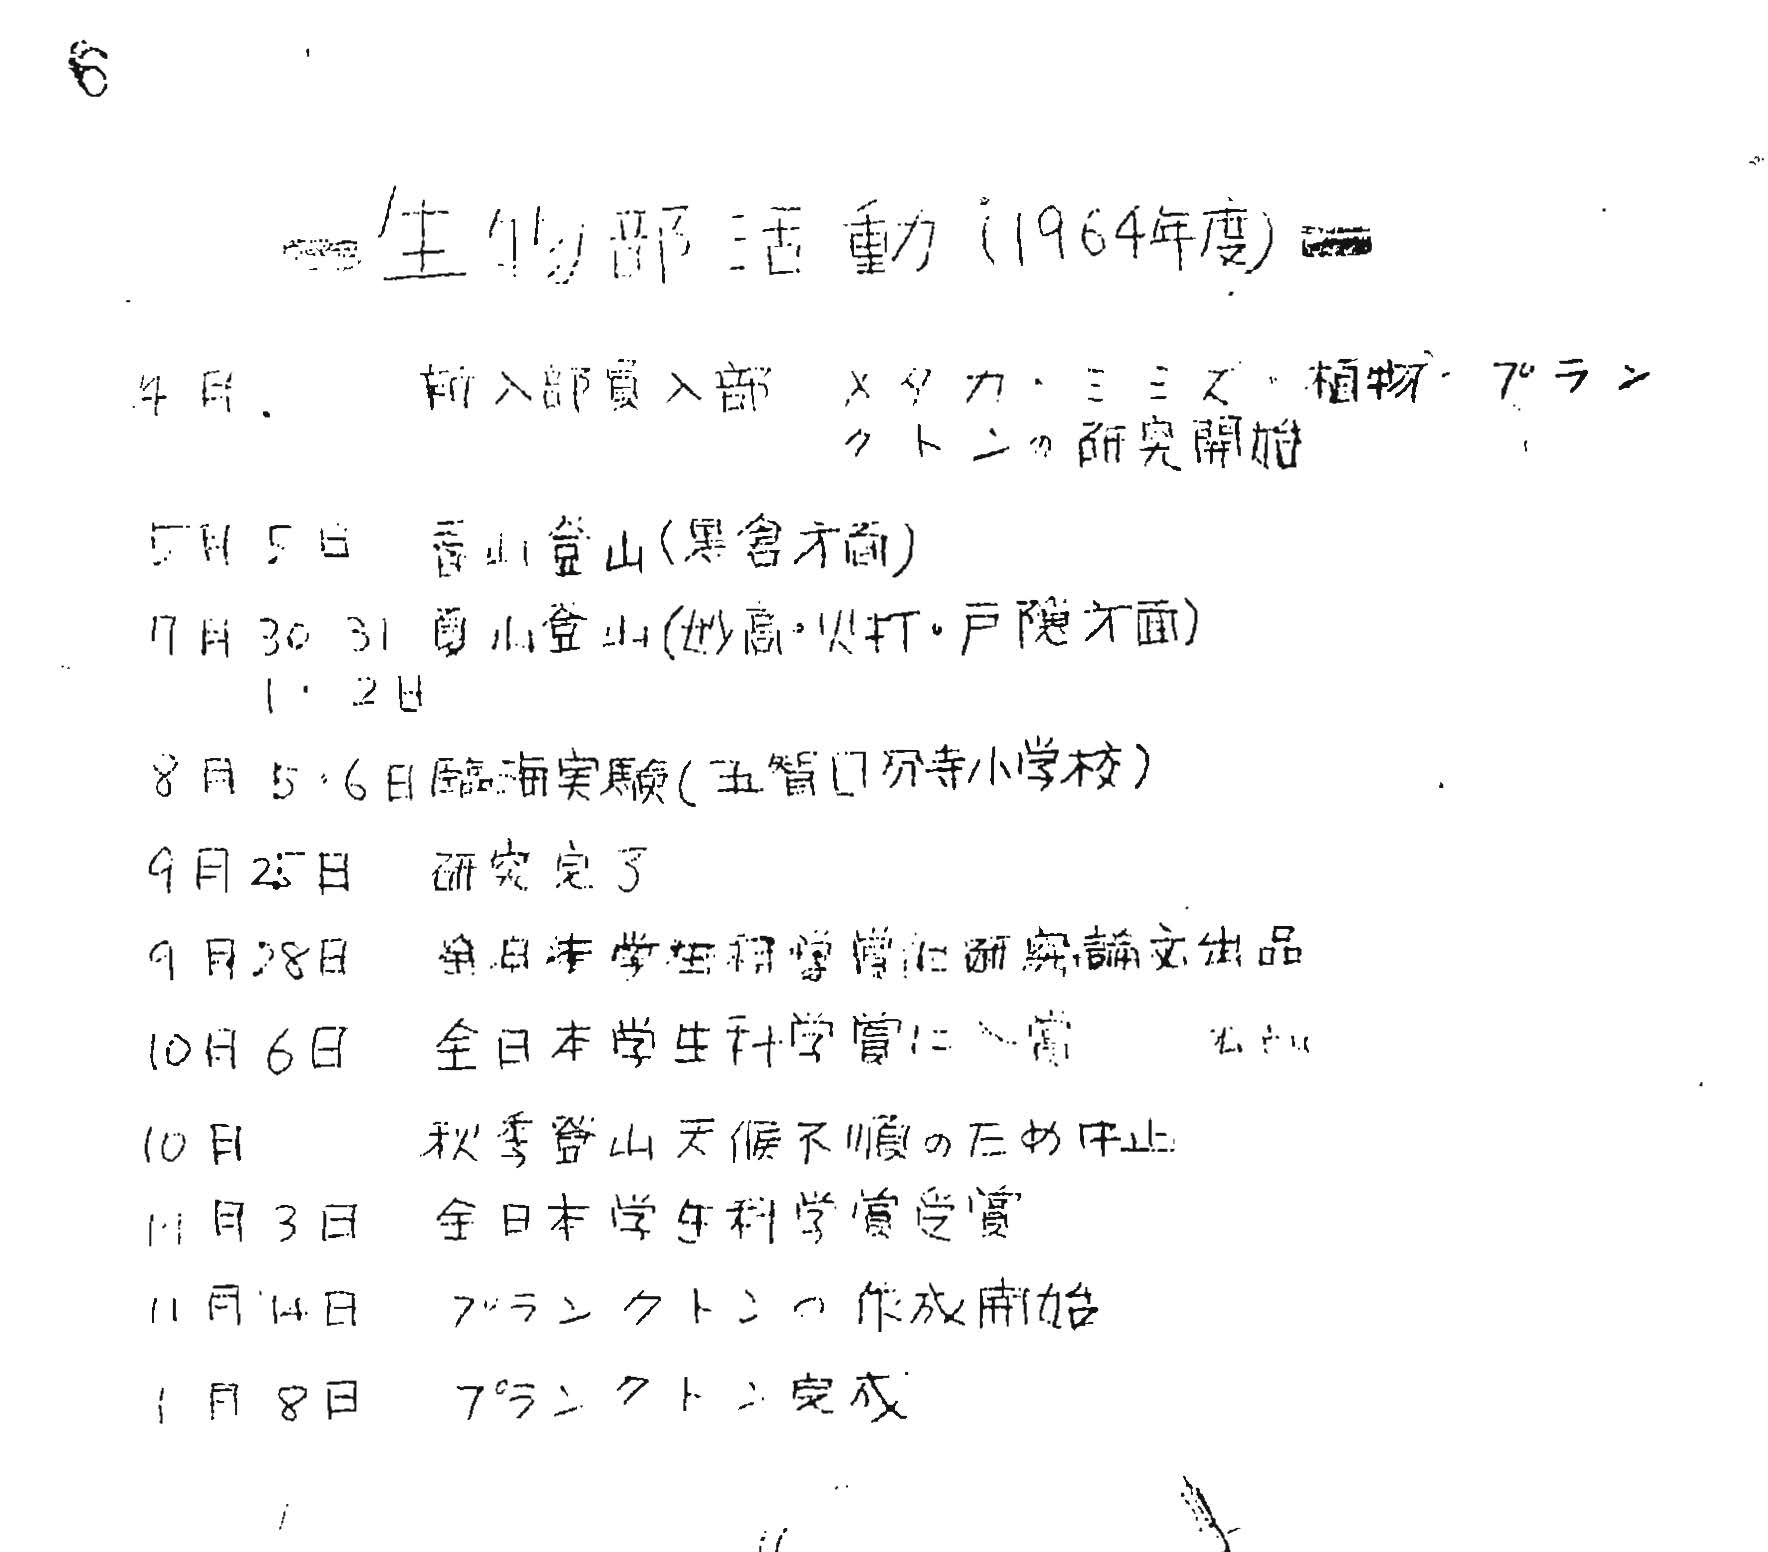 6
生物部活動(1964年度)
4月. 新入部員入部 メダカ・ミミズ・植物・プラン
クトンの研究開始
5月5日 春山登山(黒倉方面)
7月30 31 夏山登山(妙高・火打・戸隠方面)
1・2日
8月5・6日臨海実験(五智国分寺小学校)
9月25日 研究完了
9月28日 全日本学生科学賞に研究論文出品
10月6日 全日本学生科学賞に入賞
10月 秋季登山天候不順のため中止
11月3日 全日本学生科学賞受賞
11月14日 プランクトンの作成開始
1月8日 プランクトン完成